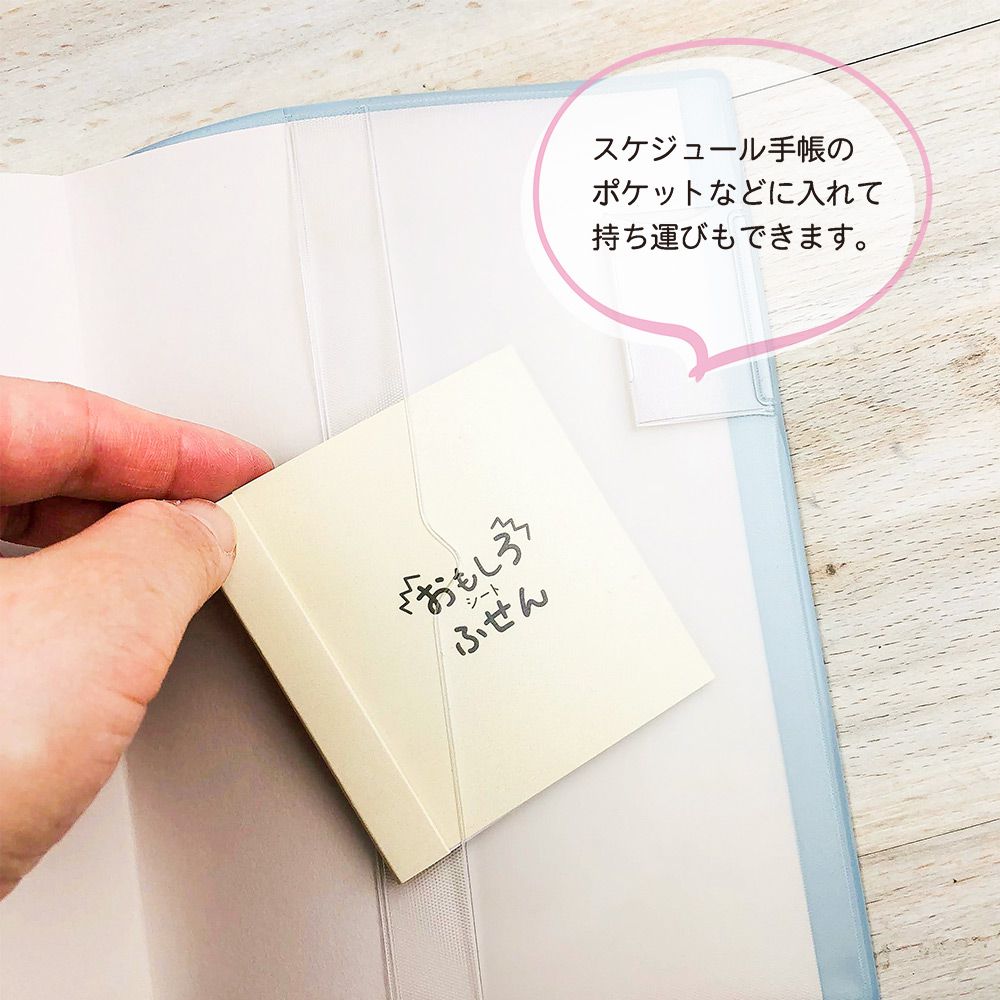 スケジュール手帳の
ポケットなどに入れて
持ち運びもできます。
おもしろ
シート
ふせん